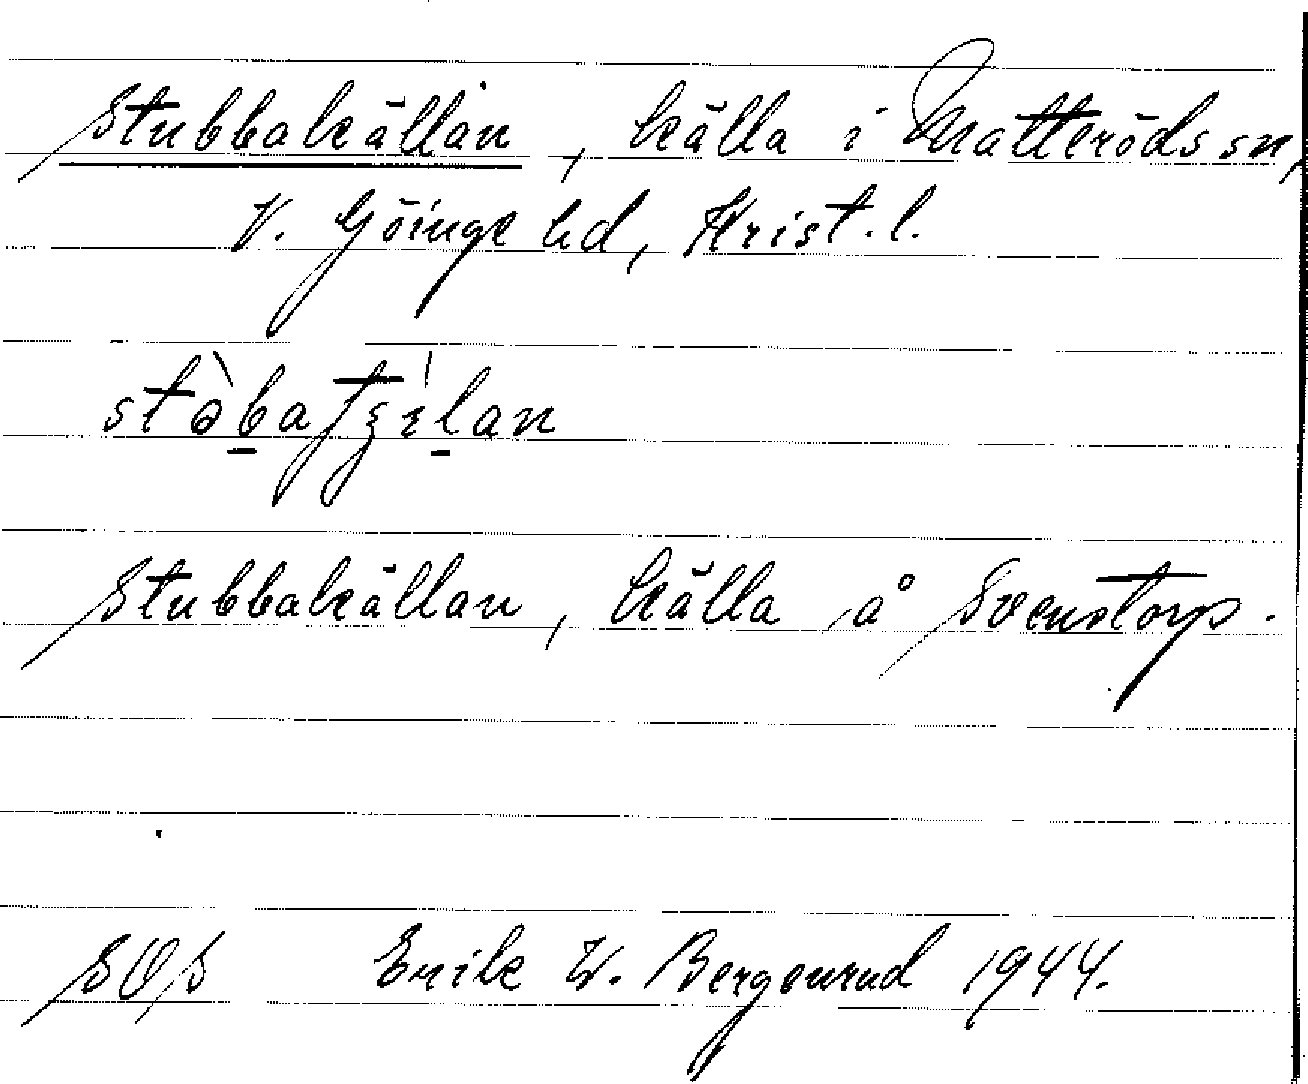 Stubbakällan, källa i Matteröds sn,
V. Göinge hd, Krist. l.
Stubbakällan, källa å Svenstorp.
SOS Erik W. Bergenrud 1944.